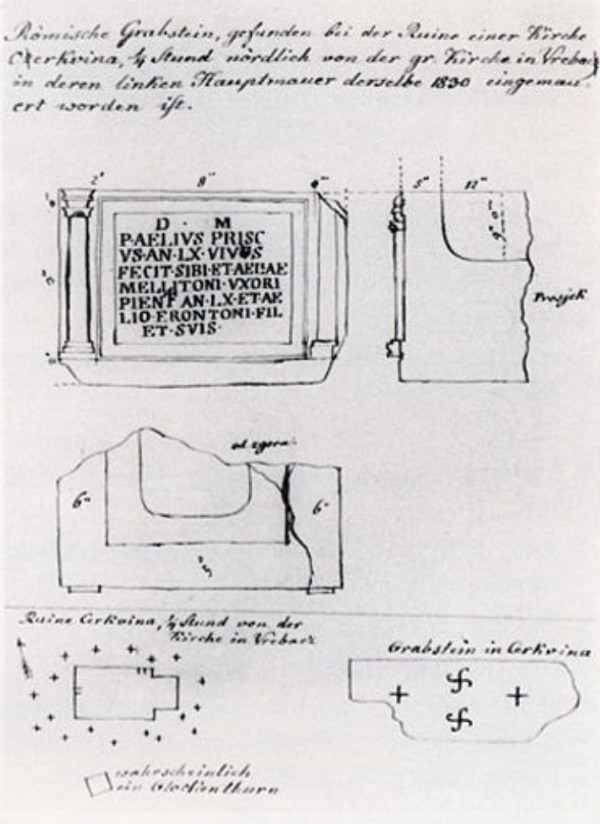 Römische Grabstein, gefunden bei der Ruine einer Kirche
Cerkvina, ¼ Stund nördlich von der gr. Kirche in Vrebac
in deren linken Hauptmauer derselbe 1830 eingemau-
ert worden ist.
2" 8"
D · M
P·AELIVS PRISC
VS·AN·LX·VIVOS
FECIT·SIBI·ET·AELIAE
MELLITONI·VXORI
PIENT AN·LX·ET·AE
LIO·FRONTONI·FIL
ET·SVIS·
5" 12"
Prosjek
od zgora
6" 6"
Ruine Cerkvina, ¼ Stund von der
Kirche in Vrebacz
Grabstein in Cerkvina
wahrscheinlich
ein Glockenthurn